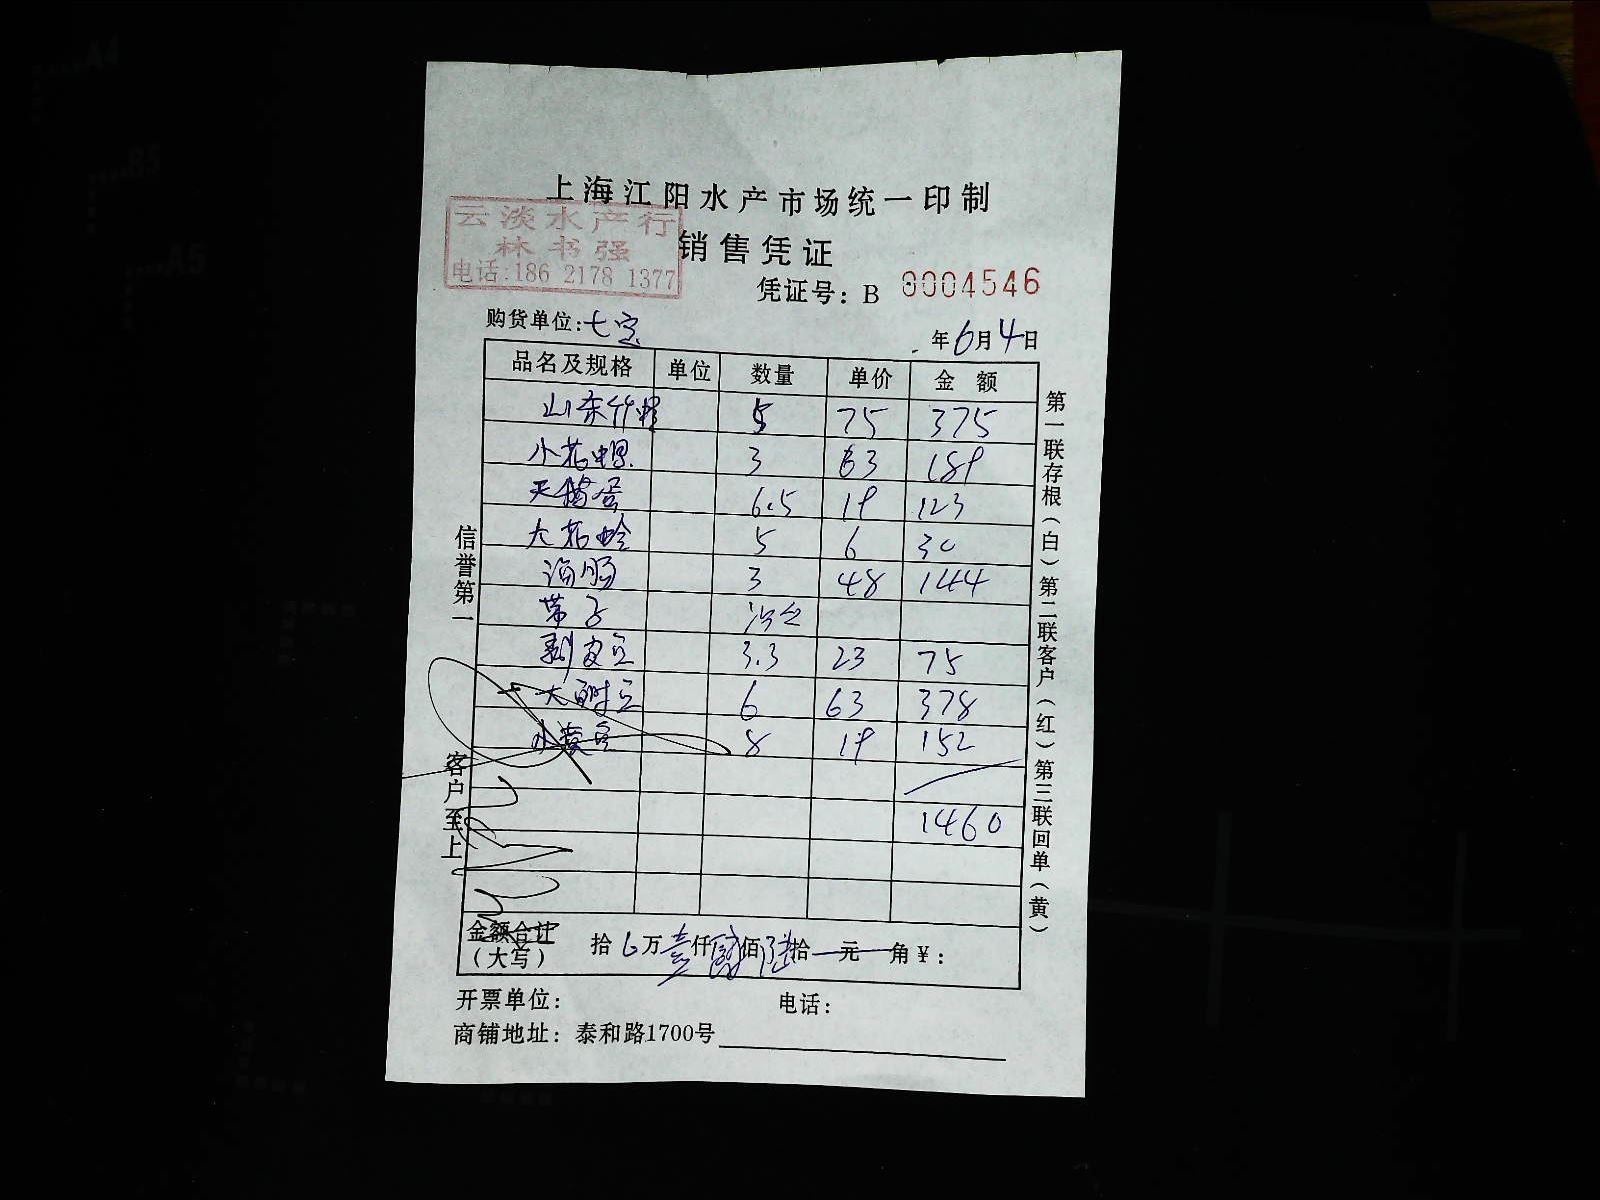 上海江阳水产市场统一印制
云淡水产行
林书强
电话:186 2178 1377
销售凭证
凭证号: B 0004546
购货单位:七宝
年6月4日
品名及规格 单位 数量 单价 金额
山东竹蛏 5 75 375
小花螺 3 63 189
天鹅蛋 6.5 19 123
大花蛤 5 6 30
海肠 3 48 144
带子
剥皮豆 3.3 23 75
大 豆 6 63 378
小黄豆 8 19 152
1460
金额合计
(大写) 拾 万壹仟 佰陆拾 元 角¥:
开票单位: 电话:
商铺地址: 泰和路1700号
信誉第一 客户至上
第一联存根(白)第二联客户(红)第三联回单(黄)